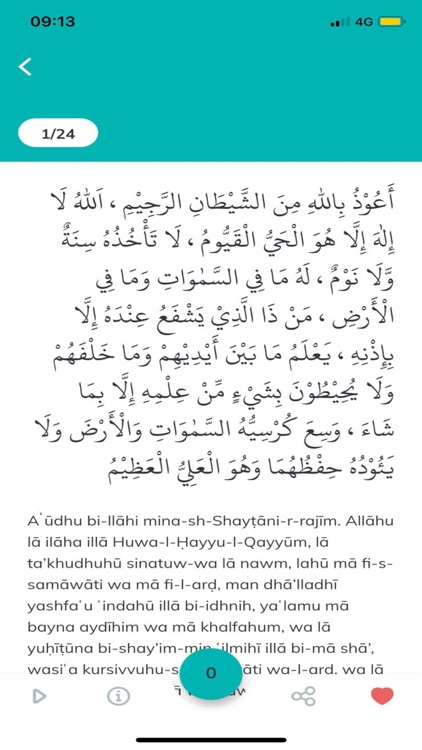 09:13
4G
1/24
أَعُوْذُ بِاللهِ مِنَ الشَّيْطَانِ الرَّجِيْمِ ، اَللهُ لَا
إِلٰهَ إِلَّا هُوَ الْحَيُّ الْقَيُّومُ ، لَا تَأْخُذُهُ سِنَةٌ
وَّلَا نَوْمٌ ، لَهُ مَا فِي السَّمٰوَاتِ وَمَا فِي
الْأَرْضِ ، مَنْ ذَا الَّذِيْ يَشْفَعُ عِنْدَهُ إِلَّا
بِإِذْنِهِ ، يَعْلَمُ مَا بَيْنَ أَيْدِيْهِمْ وَمَا خَلْفَهُمْ
وَلَا يُحِيْطُوْنَ بِشَيْءٍ مِّنْ عِلْمِهِ إِلَّا بِمَا
شَاءَ ، وَسِعَ كُرْسِيُّهُ السَّمٰوَاتِ وَالْأَرْضَ وَلَا
يَئُوْدُهُ حِفْظُهُمَا وَهُوَ الْعَلِيُّ الْعَظِيْمُ
Aʿūdhu bi-llāhi mina-sh-Shayṭāni-r-rajīm. Allāhu
lā ilāha illā Huwa-l-Ḥayyu-l-Qayyūm, lā
ta’khudhuhū sinatuw-wa lā nawm, lahū mā fi-s-
samāwāti wa mā fi-l-arḍ, man dhā’lladhī
yashfaʿu ʿindahū illā bi-idhnih, yaʿlamu mā
bayna aydīhim wa mā khalfahum, wa lā
yuḥīṭūna bi-shay’im-min ʿilmihī illā bi-mā shā’,
wasiʿa kursiyyuhu-s- āti wa-l-arḍ, wa lā
0